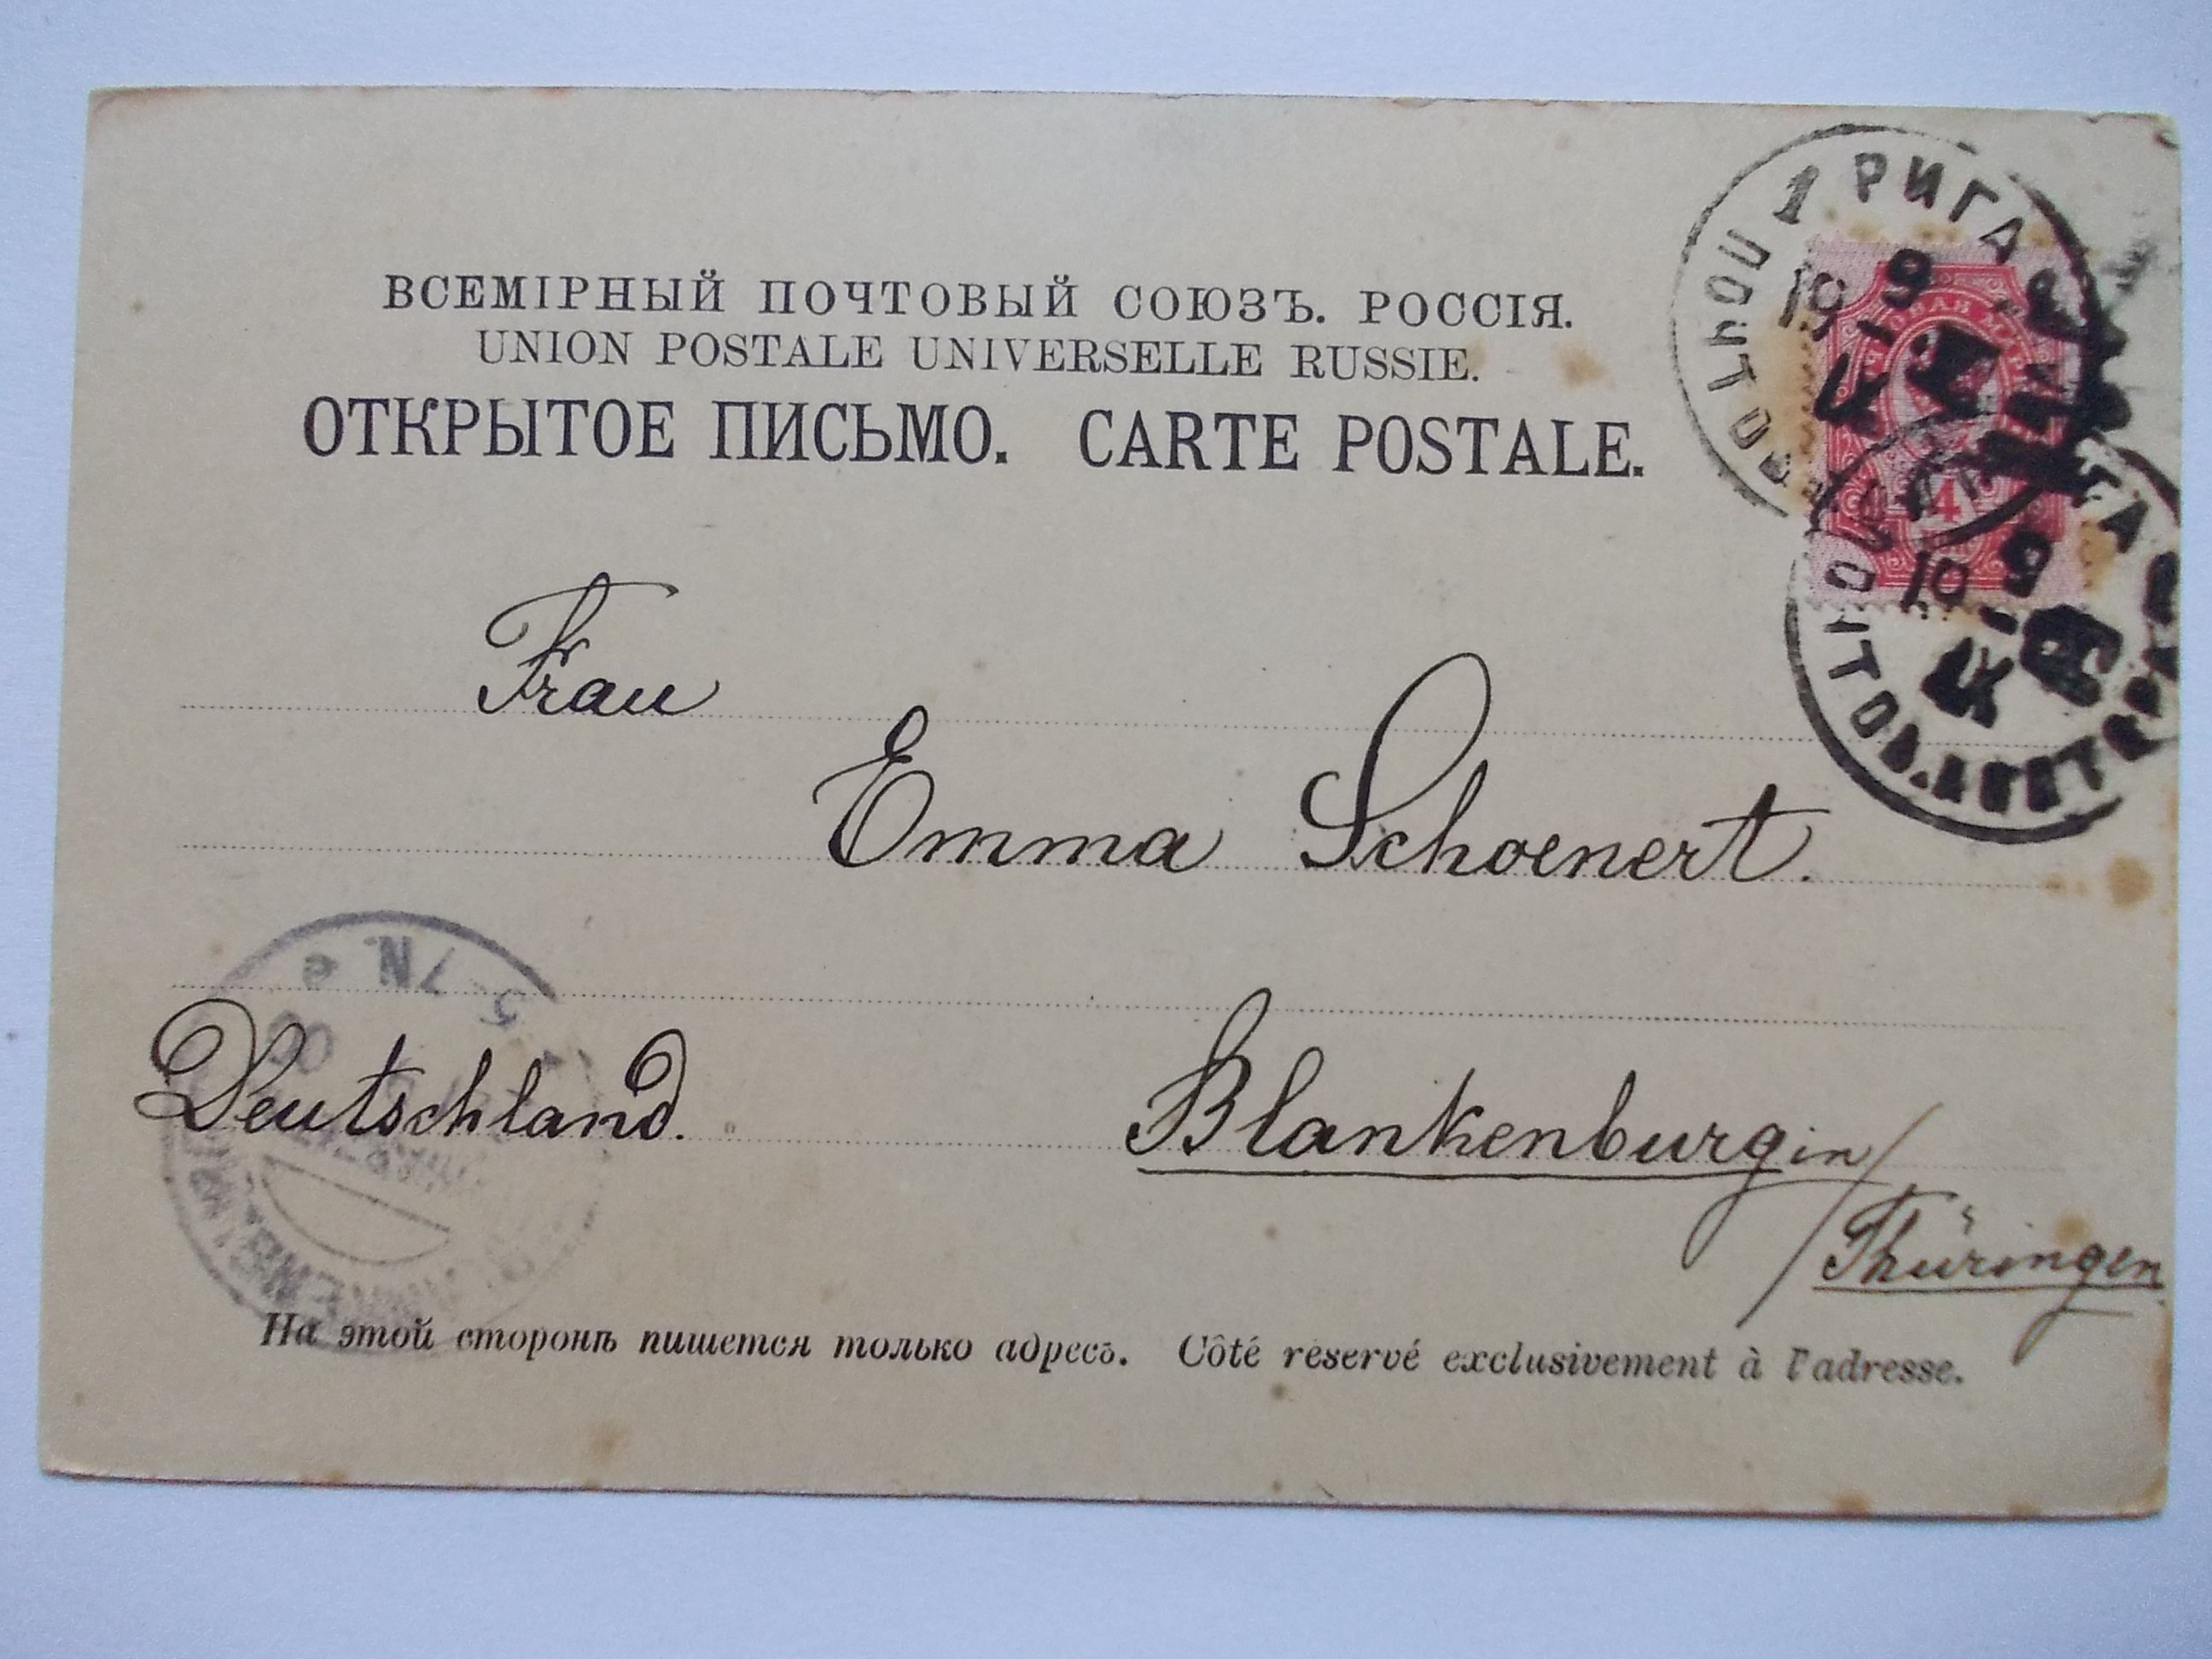 ВСЕМІРНЫЙ ПОЧТОВЫЙ СОЮЗЪ. РОССІЯ.
UNION POSTALE UNIVERSELLE RUSSIE.
ОТКРЫТОЕ ПИСЬМО. CARTE POSTALE.
1 РИГА
4
Frau
Emma Schoenert.
5-7N. e
Deutschland.
Blankenburg in
Thüringen
На этой сторонѣ пишется только адресъ. Côté réservé exclusivement à l'adresse.